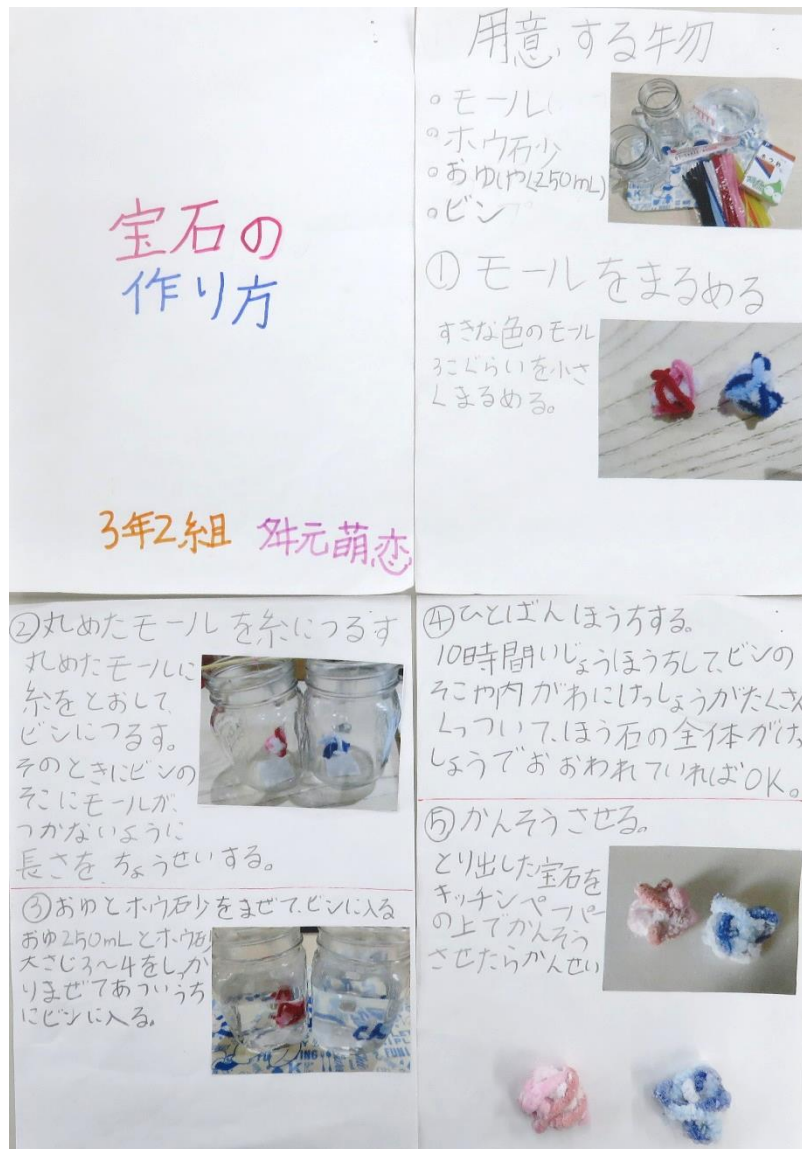 宝石の
作り方
3年2組 舛元萌恋
用意する物
モール
ホウ石少
(250mL)
ビン
① モールをまるめる
すきな色のモール
3こぐらいを小さ
くまるめる。
②丸めたモールを糸につるす
丸めたモールに
糸をとおして、
ビンにつるす。
そのときにビンの
そこにモールが、
つかないように
長さを、ちょうせいする。
③おゆとホウ石少をまぜて、ビンに入る
おゆ250mLとホウ石少
大さじ3〜4をしっか
りまぜてあついうち
にビンに入る。
④ひとばんほうちする。
10時間いじょうほうちして、ビンの
そこや内がわにけっしょうがたくさん
くっついて、ほう石の全体がけっ
しょうでおおわれていればOK。
⑤かんそうさせる。
とり出した宝石を
キッチンペーパー
の上でかんそう
させたらかんせい